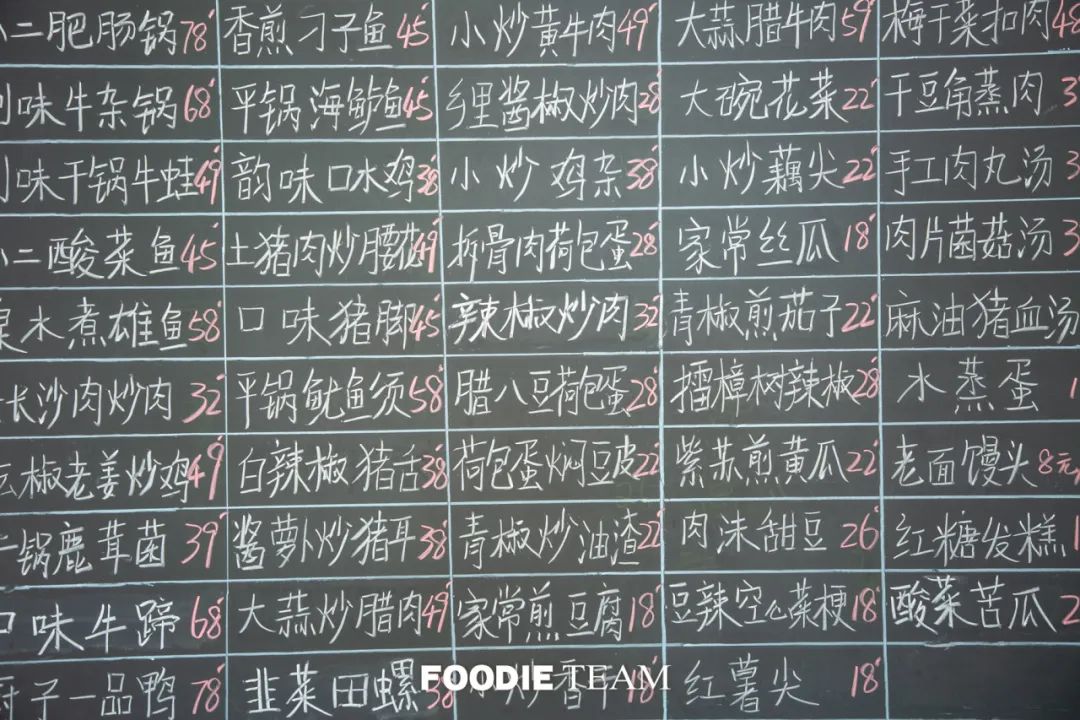 二肥肠锅78 香煎刁子鱼45 小炒黄牛肉49 大蒜腊牛肉59 梅干菜扣肉48
味牛杂锅68 平锅海鲈鱼45 乡里酱椒炒肉28 大碗花菜22 干豆角蒸肉3
味干锅牛蛙49 韵味口水鸡38 小炒鸡杂38 小炒藕尖22 手工肉丸汤3
二酸菜鱼45 土猪肉炒腰花49 拆骨肉荷包蛋28 家常丝瓜18 肉片菌菇汤3
水煮雄鱼58 口味猪脚45 辣椒炒肉32 青椒煎茄子22 麻油猪血汤
长沙肉炒肉32 平锅鱿鱼须58 腊八豆荷包蛋28 擂樟树辣椒28 水蒸蛋1
椒老姜炒鸡49 白辣椒猪舌38 荷包蛋焖豆皮22 紫苏煎黄瓜22 老面馒头8元
锅鹿茸菌39 酱萝卜炒猪耳38 青椒炒油渣22 肉沫甜豆26 红糖发糕1
味牛蹄68 大蒜炒腊肉49 家常煎豆腐18 豆辣空心菜梗18 酸菜苦瓜2
子一品鸭78 韭菜田螺38 香干18 红薯尖18
FOODIE TEAM